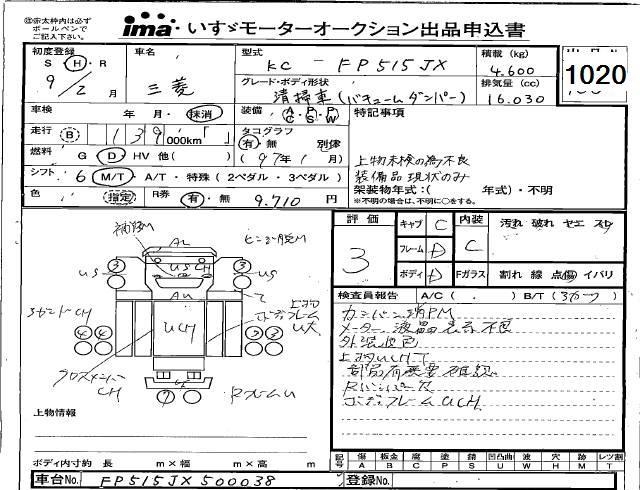 ㊟赤太枠内は必ず
ボールペンで
ご記入下さい。
ima いすゞモーターオークション出品申込書
初度登録 車名 型式 積載 (kg)
S・H・R KC - FP515JX 4.600
9/2月 三菱 グレード・ボディ形状 排気量 (cc)
清掃車(バキュームダンパー) 16.030
1020
車検 年・月・抹消 装備 AC PS PW 特記事項
走行 B 139,000km「 」 タコグラフ
有・無 別体
燃料 G D・HV 他( ) (97年1月)
上物未検の為不良
シフト 6 M/T・A/T・特殊(2ペダル・3ペダル) 装備品現状のみ
架装物年式:( 年式)・不明
色 指定 R券 有・無 9.710円 ※不明の場合は、不明に○をする。
評価 キャブ C 内装 汚れ 破れ ヤエ スレ
3 フレーム D C
ボディ D Fガラス 割れ 線 点傷 イバリ
検査員報告 A/C( . ) B/T( )
補修M AL
3 USCH 3
US US
AU
UCH
4 4
クロスメンバーCH
7
RフレームU
メーター液晶表示不良
外装色
上物UCHT
部品有無要確認
コーディフレームUCH
上物情報
ボディ内寸約 長 m×幅 m×高 m
記号 傷 板金 腐 塗 錆 凹凸曲 波 穴 跡 レツ割
A B C P S U W H M T
車台No. FP515JX500038 登録No.